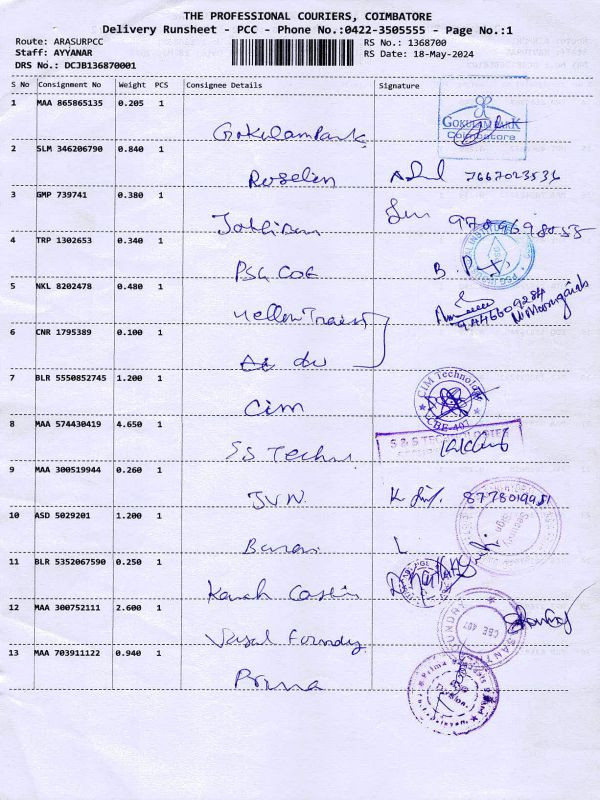 THE PROFESSIONAL COURIERS, COIMBATORE
Delivery Runsheet - PCC - Phone No.:0422-3505555 - Page No.:1
Route: ARASURPCC RS No.: 1368700
Staff: AYYANAR RS Date: 18-May-2024
DRS No.: DCJB136870001
S No Consignment No Weight PCS Consignee Details Signature
1 MAA 865865135 0.205 1 GokulamPark GOKULAM PARK Coimbatore
2 SLM 346206790 0.840 1 Roselin 7667023536
3 GMP 739741 0.380 1 9789698055
4 TRP 1302653 0.340 1 PSG COE
5 NKL 8202478 0.480 1 Yellow Train
6 CNR 1795389 0.100 1
7 BLR 5550852745 1.200 1 Cim CIM Technology CBE-407
8 MAA 574430419 4.650 1 SS Techni S & S TECHNOLOGIES
9 MAA 300519944 0.260 1 JVN 8778019951
10 ASD 5029201 1.200 1 Security Sign
11 BLR 5352067590 0.250 1
12 MAA 300752111 2.600 1 CBE 407
13 MAA 703911122 0.940 1